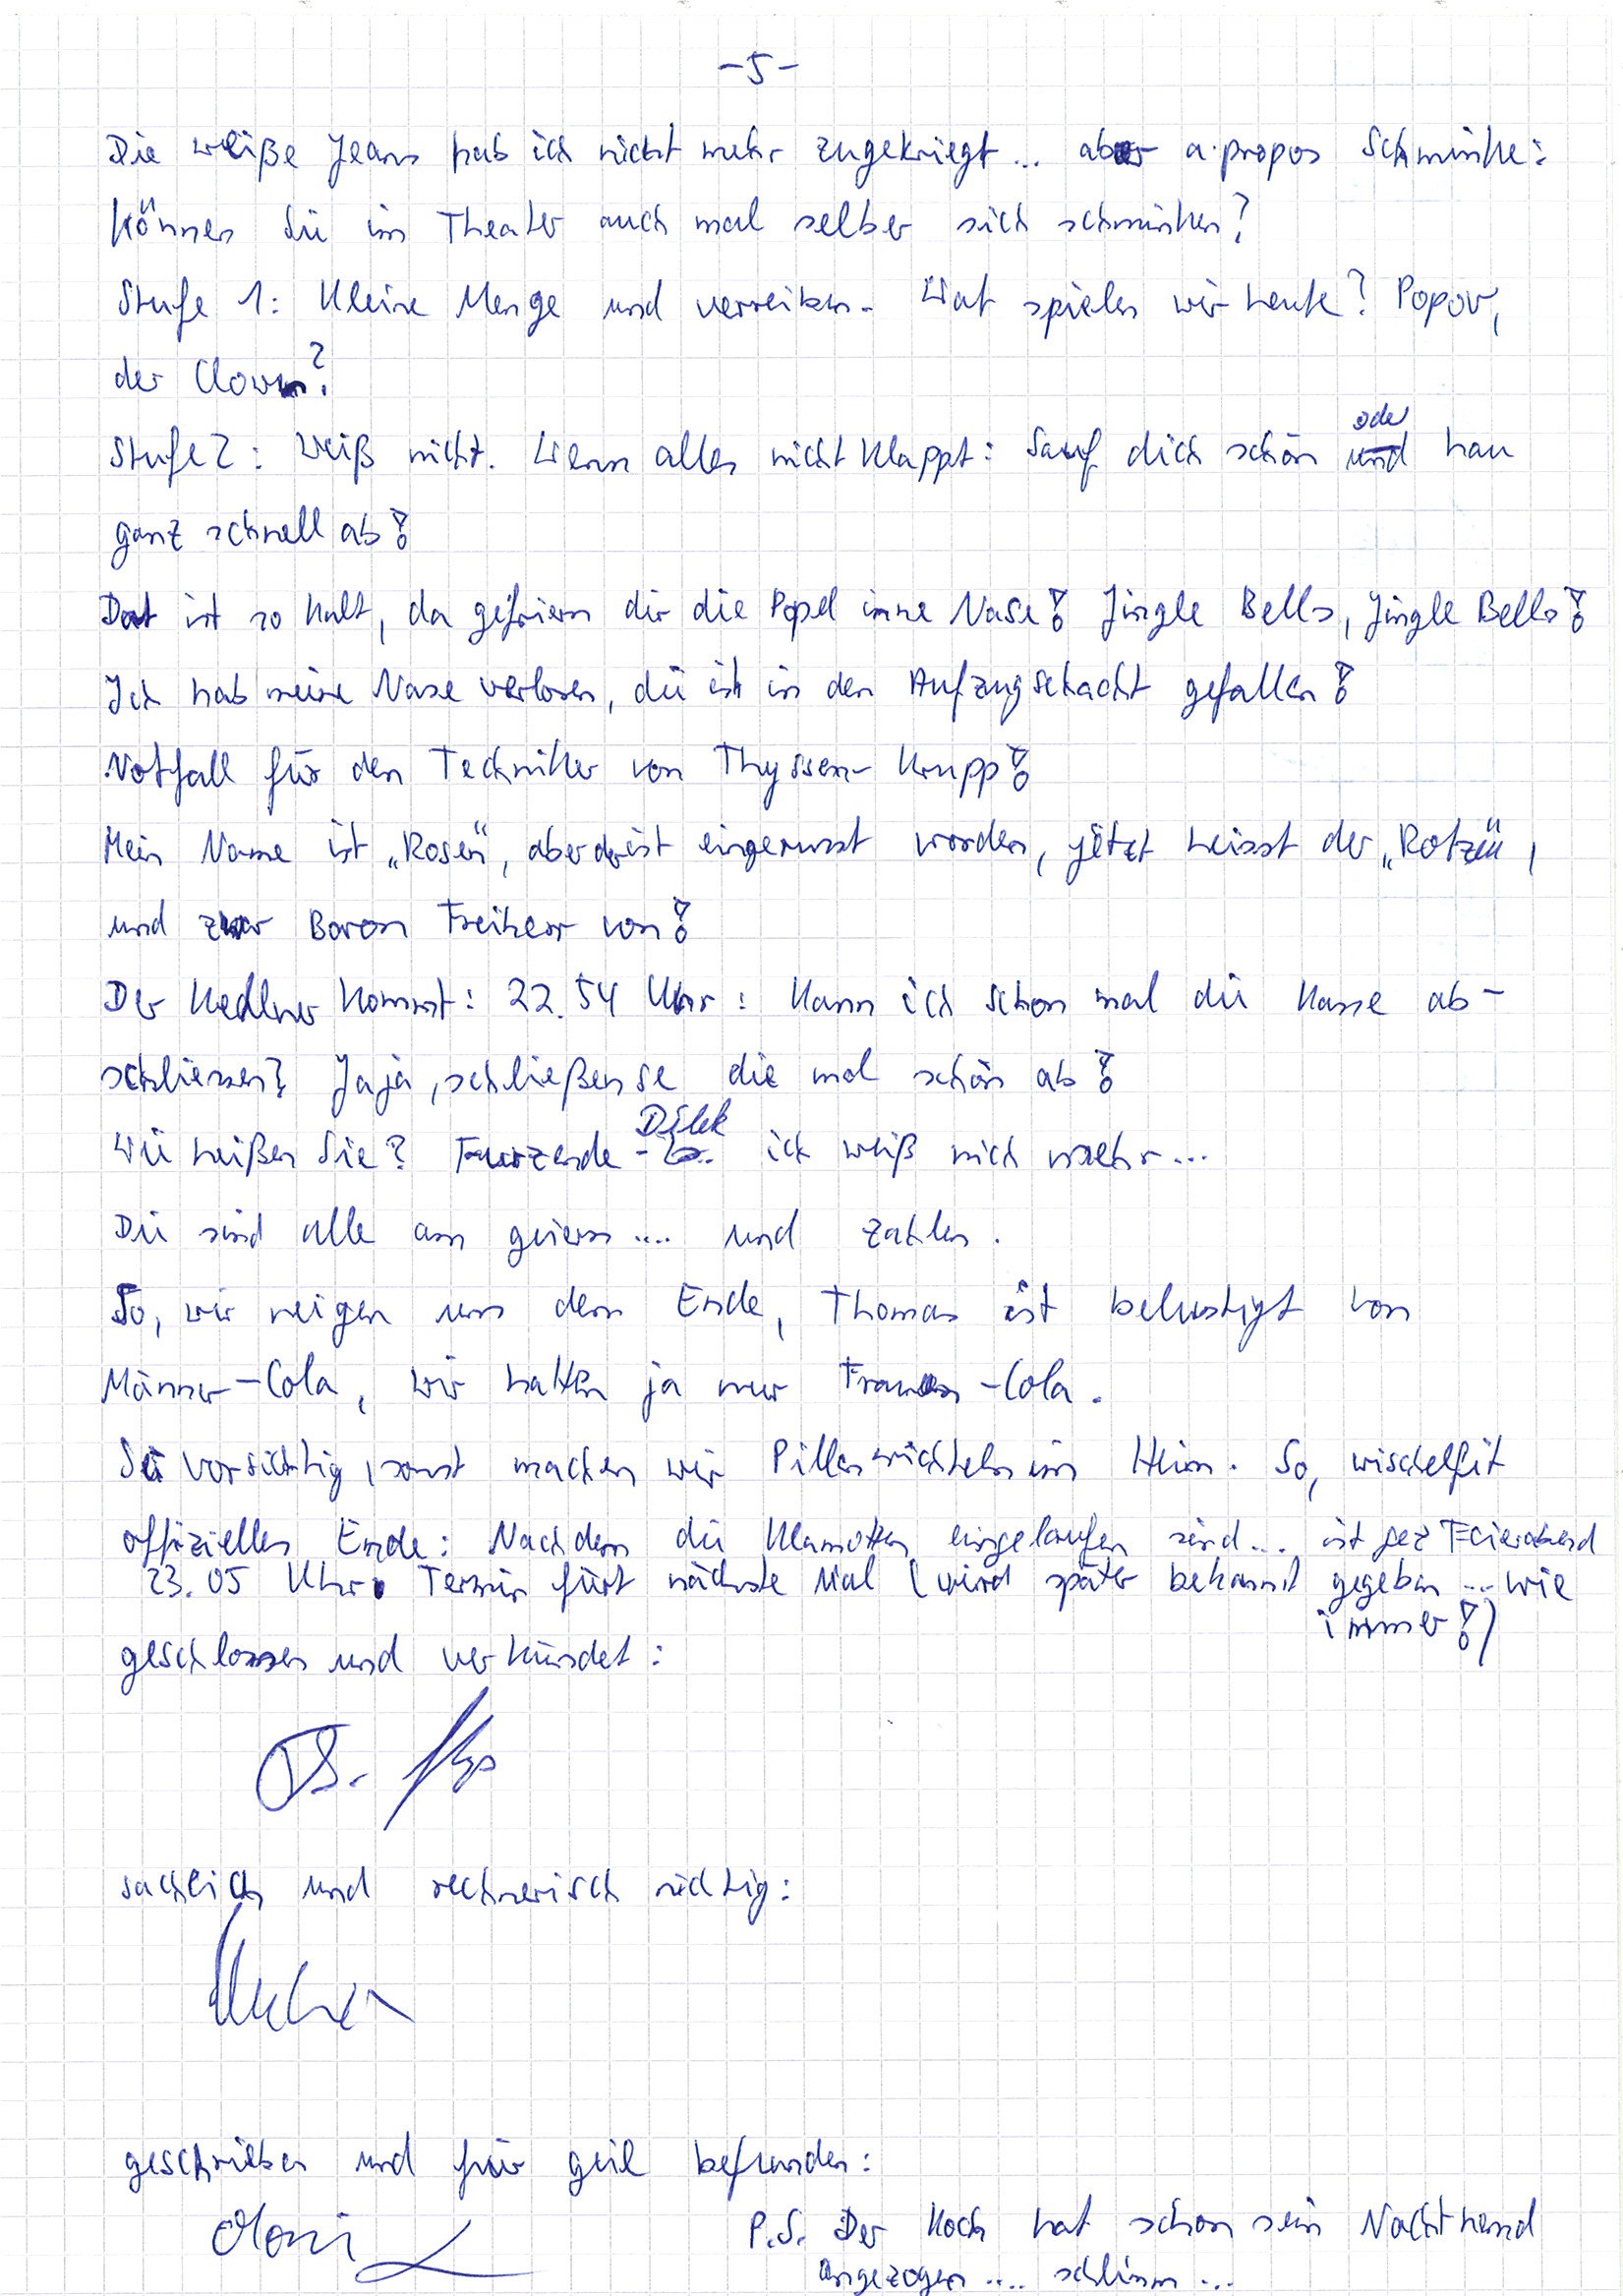 -5-
Die weiße Jeans hab ich nicht mehr zugekriegt... aber a·propos Schminke:
Können Sie im Theater auch mal selber sich schminken?
Stufe 1: Kleine Menge und verreiben. Wat spielen wir heute? Popov,
der Clown?
Stufe 2: Weiß nicht. Wenn alles nicht klappt: Sauf dich schön oder hau
ganz schnell ab!
Dat ist so kalt, da gefriern dir die Popel inne Nase! Jingle Bells, Jingle Bells!
Ich hab meine Nase verloren, die ist in den Aufzugschacht gefallen!
Notfall für den Techniker von Thyssen-Krupp!
Mein Name ist „Rosen", aber der ist eingerusst worden, jetzt heisst der „Rotzen",
und zwar Baron Freiherr von!
Der Kellner kommt: 22.54 Uhr: Kann ich schon mal die Kasse ab-
schliessen? Jaja, schließen se die mal schön ab!
Wie heißen Sie? Furzende - Dilek ich weiß nich mehr...
Die sind alle am geiern .... und zahlen.
So, wir neigen uns dem Ende, Thomas ist belustigt von
Männer-Cola, wir hatten ja nur Frauen-Cola.
Sei vorsichtig, sonst machen wir Pillenwichteln im Heim. So, wischelfit
offizielles Ende: Nachdem die Klamotten eingelaufen sind... ist jez Feierabend
23.05 Uhr. Termin fürt nächste Mal (wird später bekannt gegeben ... wie
immer!)
geschlossen und verkündet:
sachlich und rechnerisch richtig:
geschrieben und für geil befunden:
Moni
P.S. Der Koch hat schon sein Nachthemd
angezogen .... schlimm ...